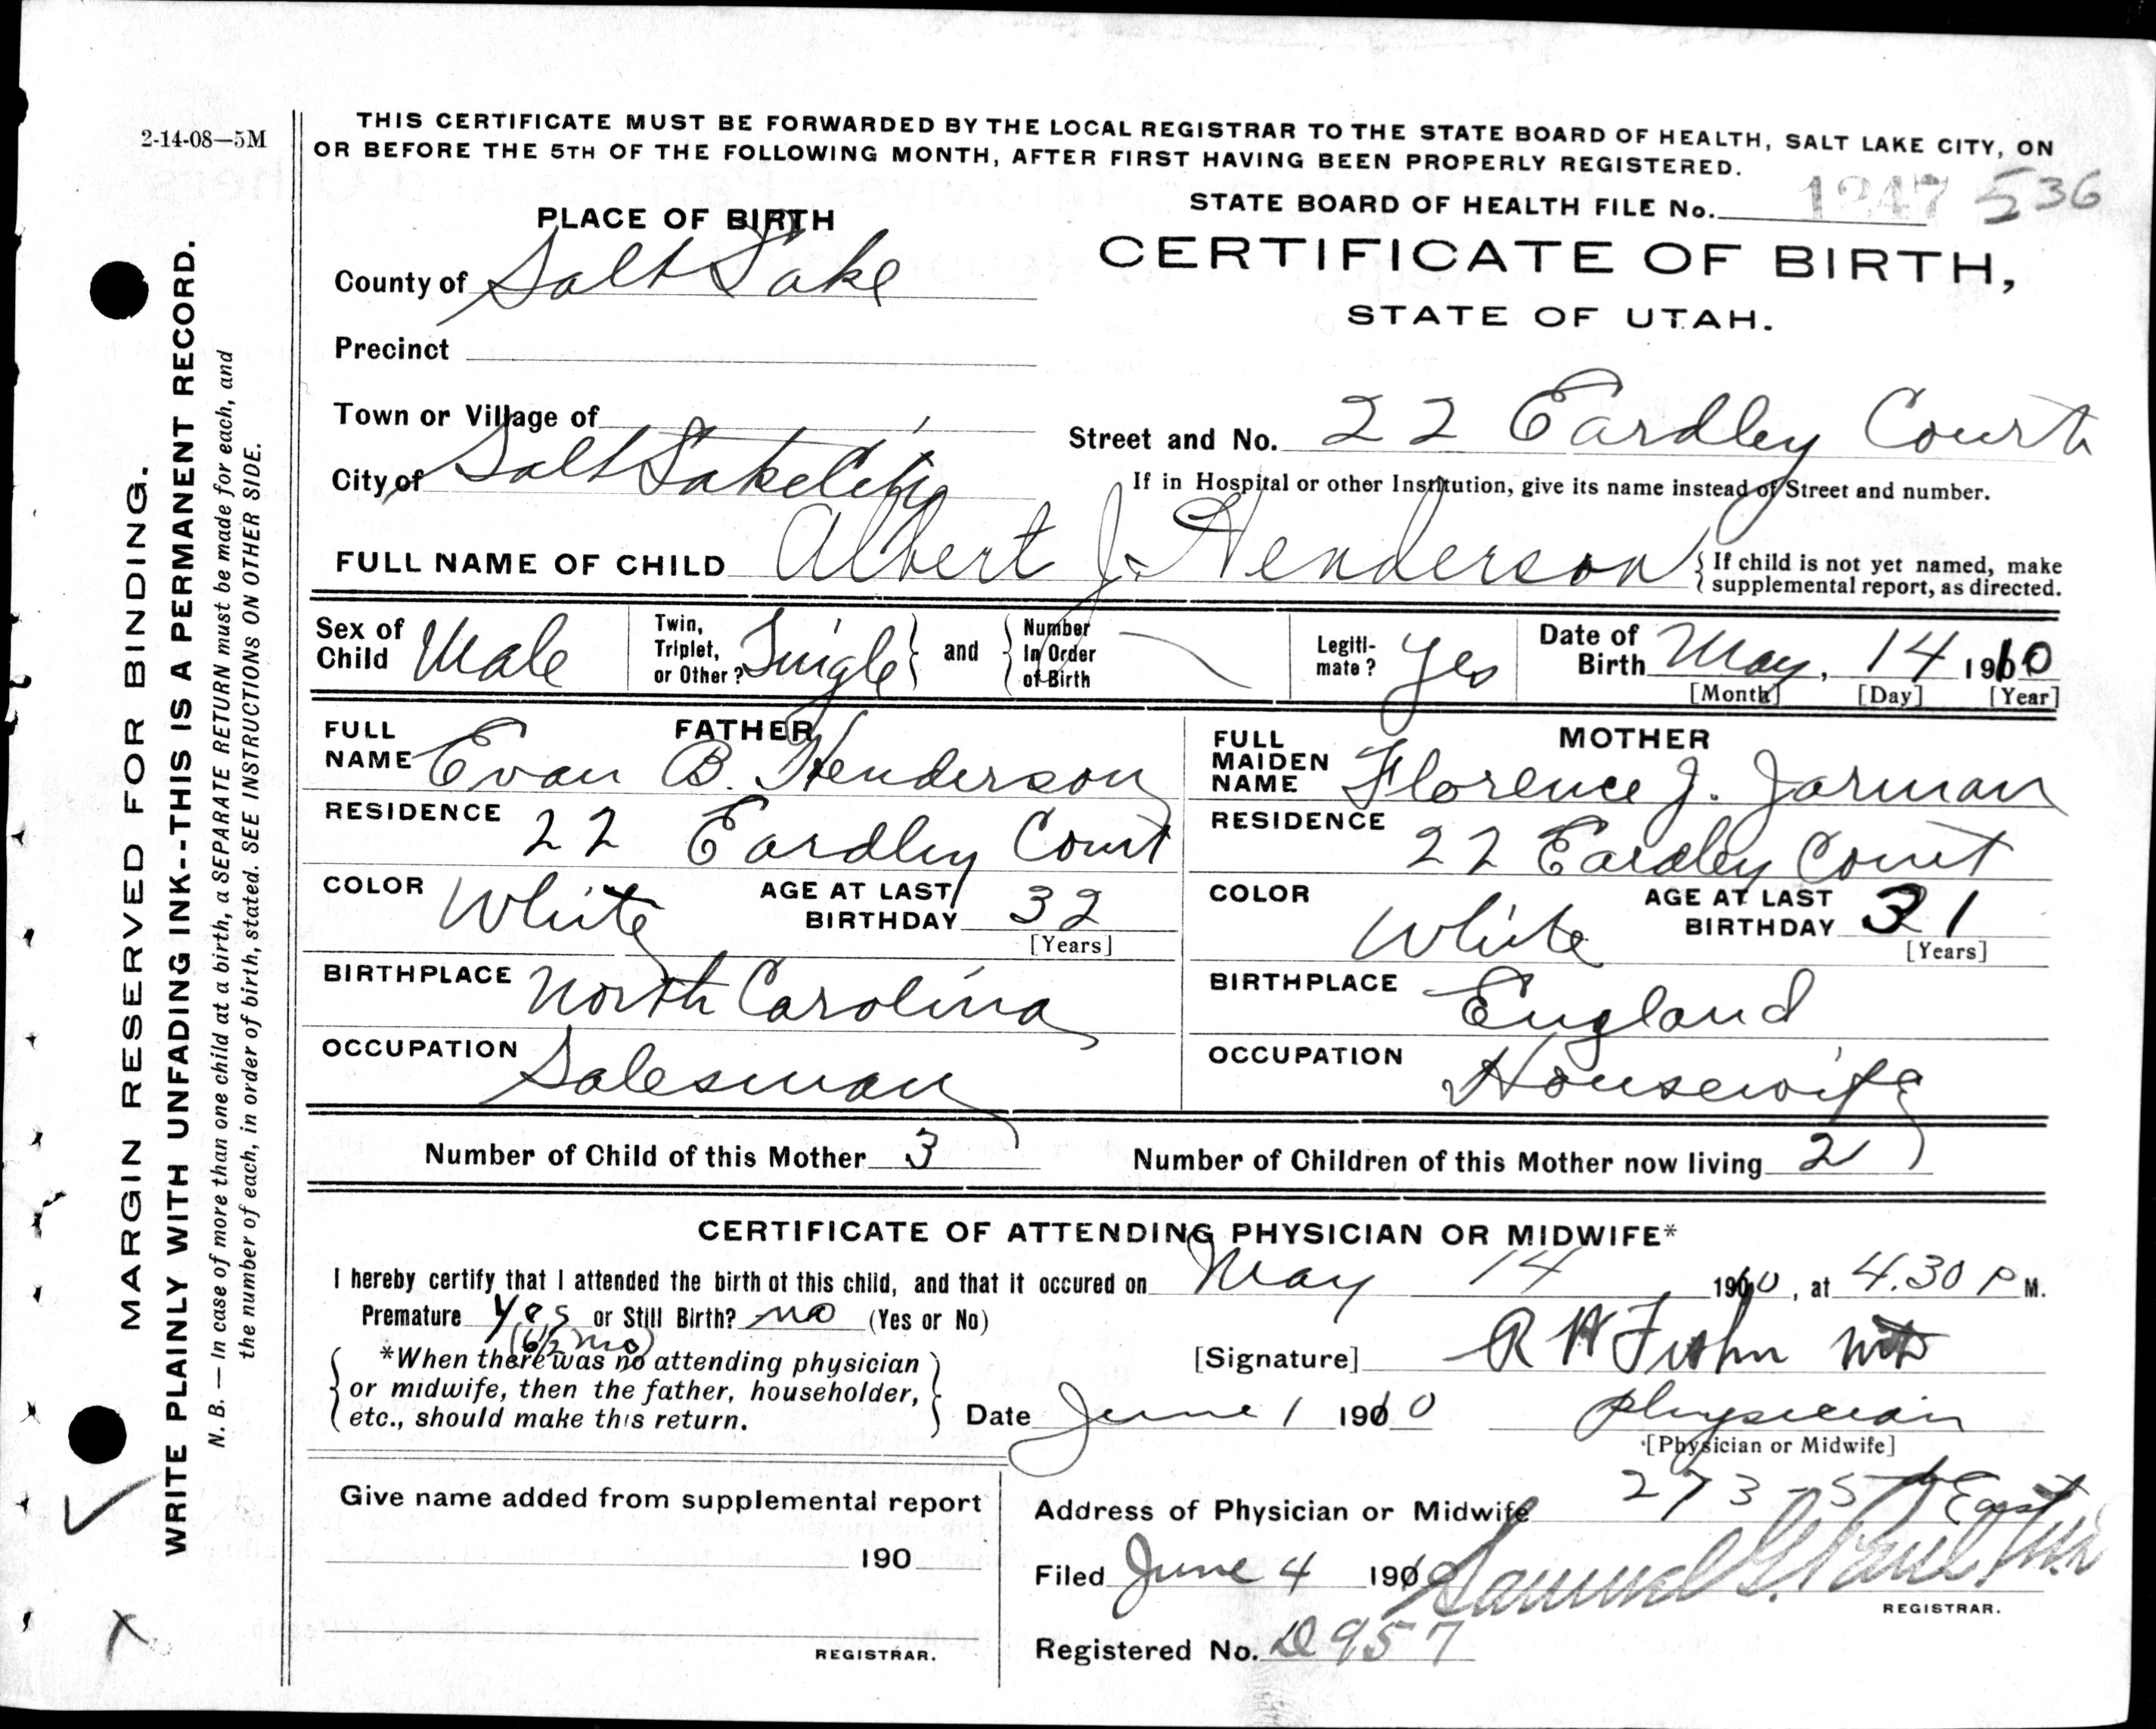 2-14-08—5M
THIS CERTIFICATE MUST BE FORWARDED BY THE LOCAL REGISTRAR TO THE STATE BOARD OF HEALTH, SALT LAKE CITY, ON
OR BEFORE THE 5TH OF THE FOLLOWING MONTH, AFTER FIRST HAVING BEEN PROPERLY REGISTERED.
STATE BOARD OF HEALTH FILE No. 1247 536
PLACE OF BIRTH
CERTIFICATE OF BIRTH,
STATE OF UTAH.
County of Salt Lake
Precinct
Town or Village of
Street and No. 22 Eardley Court
City of Salt Lake City
If in Hospital or other Institution, give its name instead of Street and number.
FULL NAME OF CHILD Albert J. Henderson
{ If child is not yet named, make
supplemental report, as directed.
Sex of Child Male
Twin, Triplet, or Other? Single } and { Number In Order of Birth
Legiti-mate? Yes
Date of Birth May, 14 1910
[Month] [Day] [Year]
FATHER
FULL NAME Evan B. Henderson
RESIDENCE 22 Eardley Court
COLOR White AGE AT LAST BIRTHDAY 32
[Years]
BIRTHPLACE North Carolina
OCCUPATION Salesman
MOTHER
FULL MAIDEN NAME Florence J. Jarman
RESIDENCE 22 Eardley Court
COLOR White AGE AT LAST BIRTHDAY 31
[Years]
BIRTHPLACE England
OCCUPATION Housewife
Number of Child of this Mother 3 Number of Children of this Mother now living 2
CERTIFICATE OF ATTENDING PHYSICIAN OR MIDWIFE*
I hereby certify that I attended the birth of this child, and that it occured on May 14 1910, at 4.30 P M.
Premature Yes or Still Birth? no (Yes or No)
(6½ mo)
*When there was no attending physician
or midwife, then the father, householder,
etc., should make this return.
[Signature] R W
Date June 1 1910 physician
[Physician or Midwife]
Give name added from supplemental report
190
REGISTRAR.
Address of Physician or Midwife 273 - 5th East
Filed June 4 1910 Samuel G. Paul
REGISTRAR.
Registered No. D957
MARGIN RESERVED FOR BINDING.
WRITE PLAINLY WITH UNFADING INK--THIS IS A PERMANENT RECORD.
N. B. — In case of more than one child at a birth, a SEPARATE RETURN must be made for each, and
the number of each, in order of birth, stated. SEE INSTRUCTIONS ON OTHER SIDE.